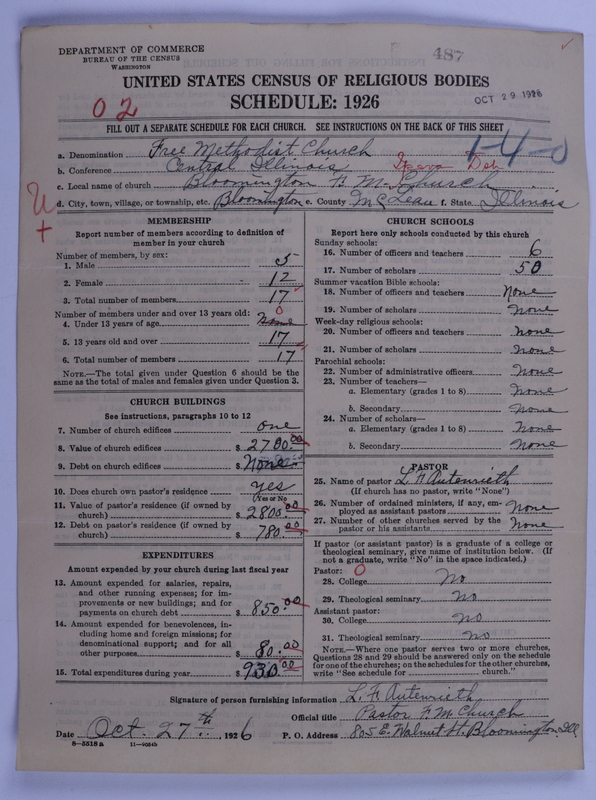 DEPARTMENT OF COMMERCE
BUREAU OF THE CENSUS
WASHINGTON
487
UNITED STATES CENSUS OF RELIGIOUS BODIES
SCHEDULE: 1926
OCT 29 1926
02
FILL OUT A SEPARATE SCHEDULE FOR EACH CHURCH. SEE INSTRUCTIONS ON THE BACK OF THIS SHEET
1-4-0
a. Denomination Free Methodist Church
b. Conference Central Illinois
c. Local name of church Bloomington F. M. Church
d. City, town, village, or township, etc. Bloomington e. County McLean f. State Illinois
MEMBERSHIP
Report number of members according to definition of
member in your church
Number of members, by sex:
1. Male 5
2. Female 12
3. Total number of members 17
Number of members under and over 13 years old: 0
4. Under 13 years of age none
5. 13 years old and over 17
6. Total number of members 17
NOTE.—The total given under Question 6 should be
same as the total of males and females given under Question 3.
CHURCH BUILDINGS
See instructions, paragraphs 10 to 12
7. Number of church edifices one
8. Value of church edifices $ 2700.00
9. Debt on church edifices $ None
10. Does church own pastor's residence yes
(Yes or No)
11. Value of pastor's residence (if owned by
church) $ 2800.00
12. Debt on pastor's residence (if owned by
church) $ 780.00
EXPENDITURES
Amount expended by your church during last fiscal year
13. Amount expended for salaries, repairs,
and other running expenses; for im-
provements or new buildings; and for
payments on church debt $ 850.00
14. Amount expended for benevolences, in-
cluding home and foreign missions; for
denominational support; and for all
other purposes $ 80.00
15. Total expenditures during year $ 930.00
CHURCH SCHOOLS
Report here only schools conducted by this church
Sunday schools:
16. Number of officers and teachers 6
17. Number of scholars 50
Summer vacation Bible schools:
18. Number of officers and teachers None
19. Number of scholars none
Week-day religious schools:
20. Number of officers and teachers none
21. Number of scholars none
Parochial schools:
22. Number of administrative officers none
23. Number of teachers—
a. Elementary (grades 1 to 8) None
b. Secondary None
24. Number of scholars—
a. Elementary (grades 1 to 8) None
b. Secondary None
PASTOR
25. Name of pastor L. F. Autenrieth
(If church has no pastor, write "None")
26. Number of ordained ministers, if any, em-
ployed as assistant pastors None
27. Number of other churches served by the
pastor or his assistants None
If pastor (or assistant pastor) is a graduate of a college or
theological seminary, give name of institution below. (If
not a graduate, write "No" in the space indicated.)
Pastor: 0
28. College No
29. Theological seminary No
Assistant pastor:
30. College No
31. Theological seminary No
NOTE.—Where one pastor serves two or more churches,
Questions 28 and 29 should be answered only on the schedule
for one of the churches; on the schedules for the other churches,
write "See schedule for church."
Signature of person furnishing information L. F. Autenrieth
Official title Pastor F. M. Church
Date Oct. 27th 1926 P. O. Address 805 E. Walnut St. Bloomington, Ill
8-5518a 11-9034b